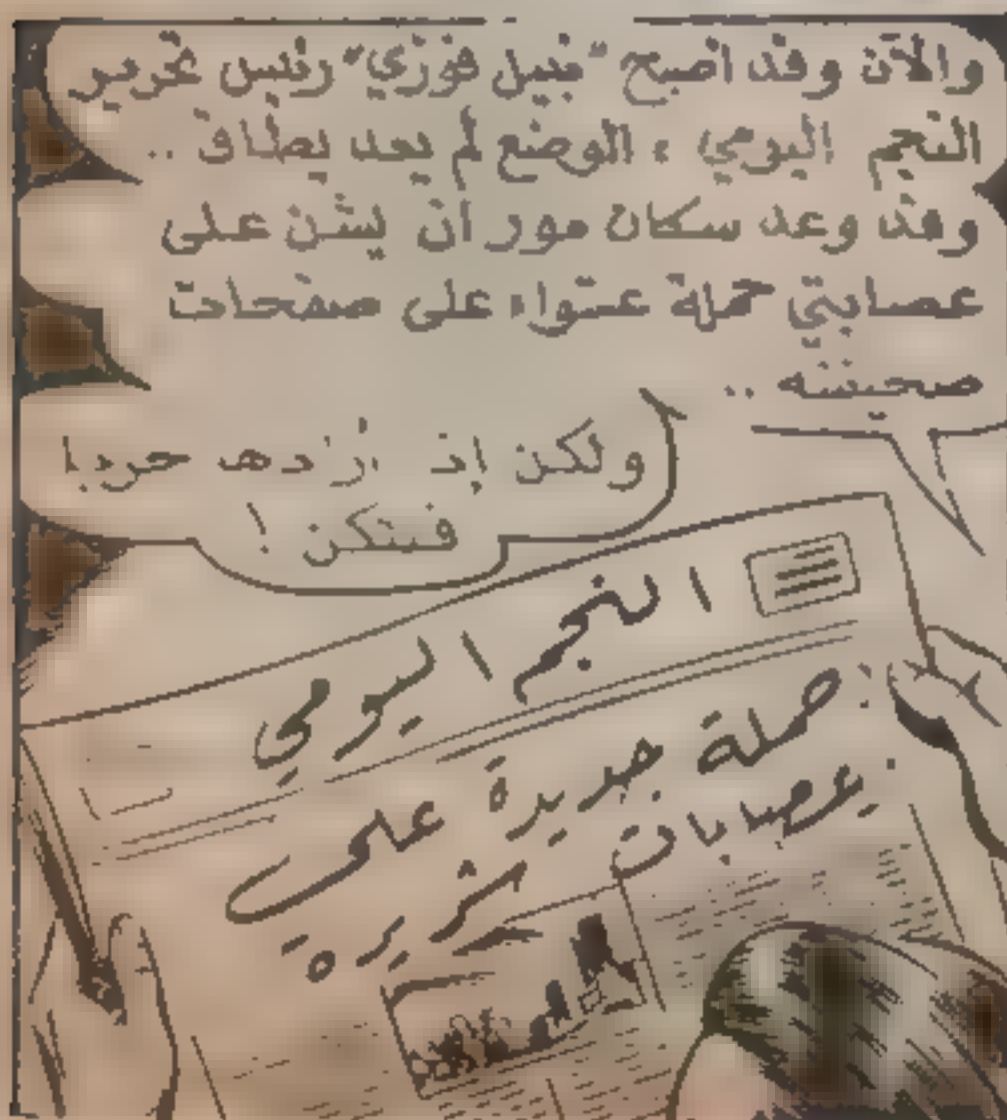 والآن وقد أصبح "نبيل فوزي" رئيس تحرير
النجم اليومي ، الوضع لم يعد يطاق ..
وقد وعد سكان مور أن يشن على
عصابتي حملة عشواء على صفحات
صحيفته ..
ولكن إن أرادها حربا
فلتكن !
النجم اليومي
حملة جديدة على
عصابات شريره